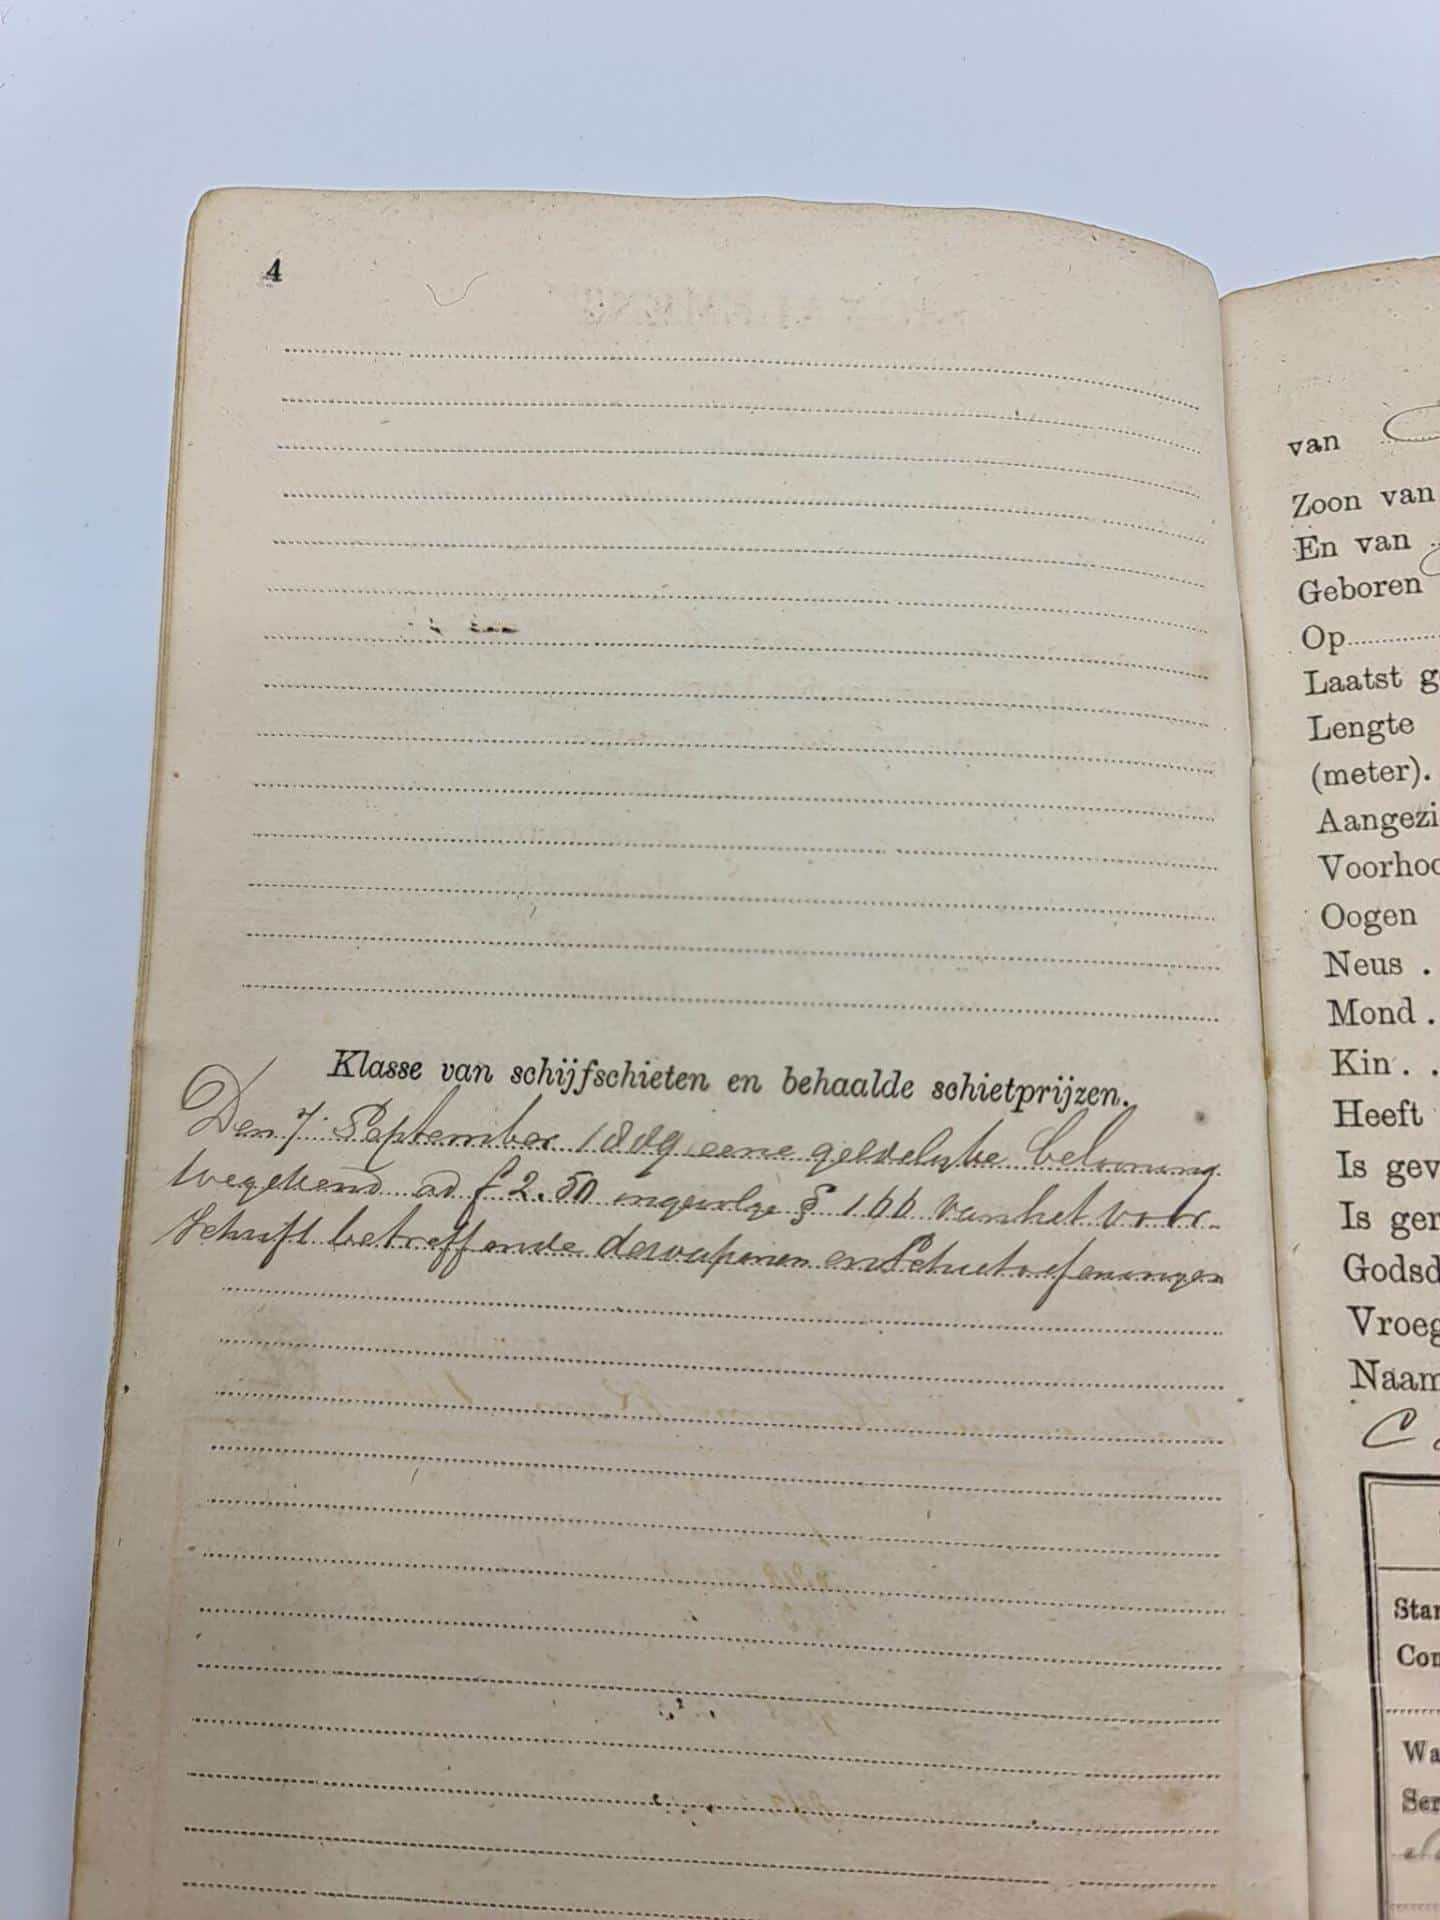 4
Klasse van schijfschieten en behaalde schietprijzen.
Den 7 September 1889 eene geldelijke belooning
toegekend ad f 2.50 ingevolge § 166 van het voor-
schrift betreffende de wapenen en schietoefeningen
van
Zoon van
En van
Geboren
Op
Laatst g
Lengte
(meter).
Aangezi
Voorhoo
Oogen
Neus .
Mond .
Kin . .
Heeft
Is gev
Is ger
Godsd
Vroeg
Naam
C
Star
Con
Wa
Ser